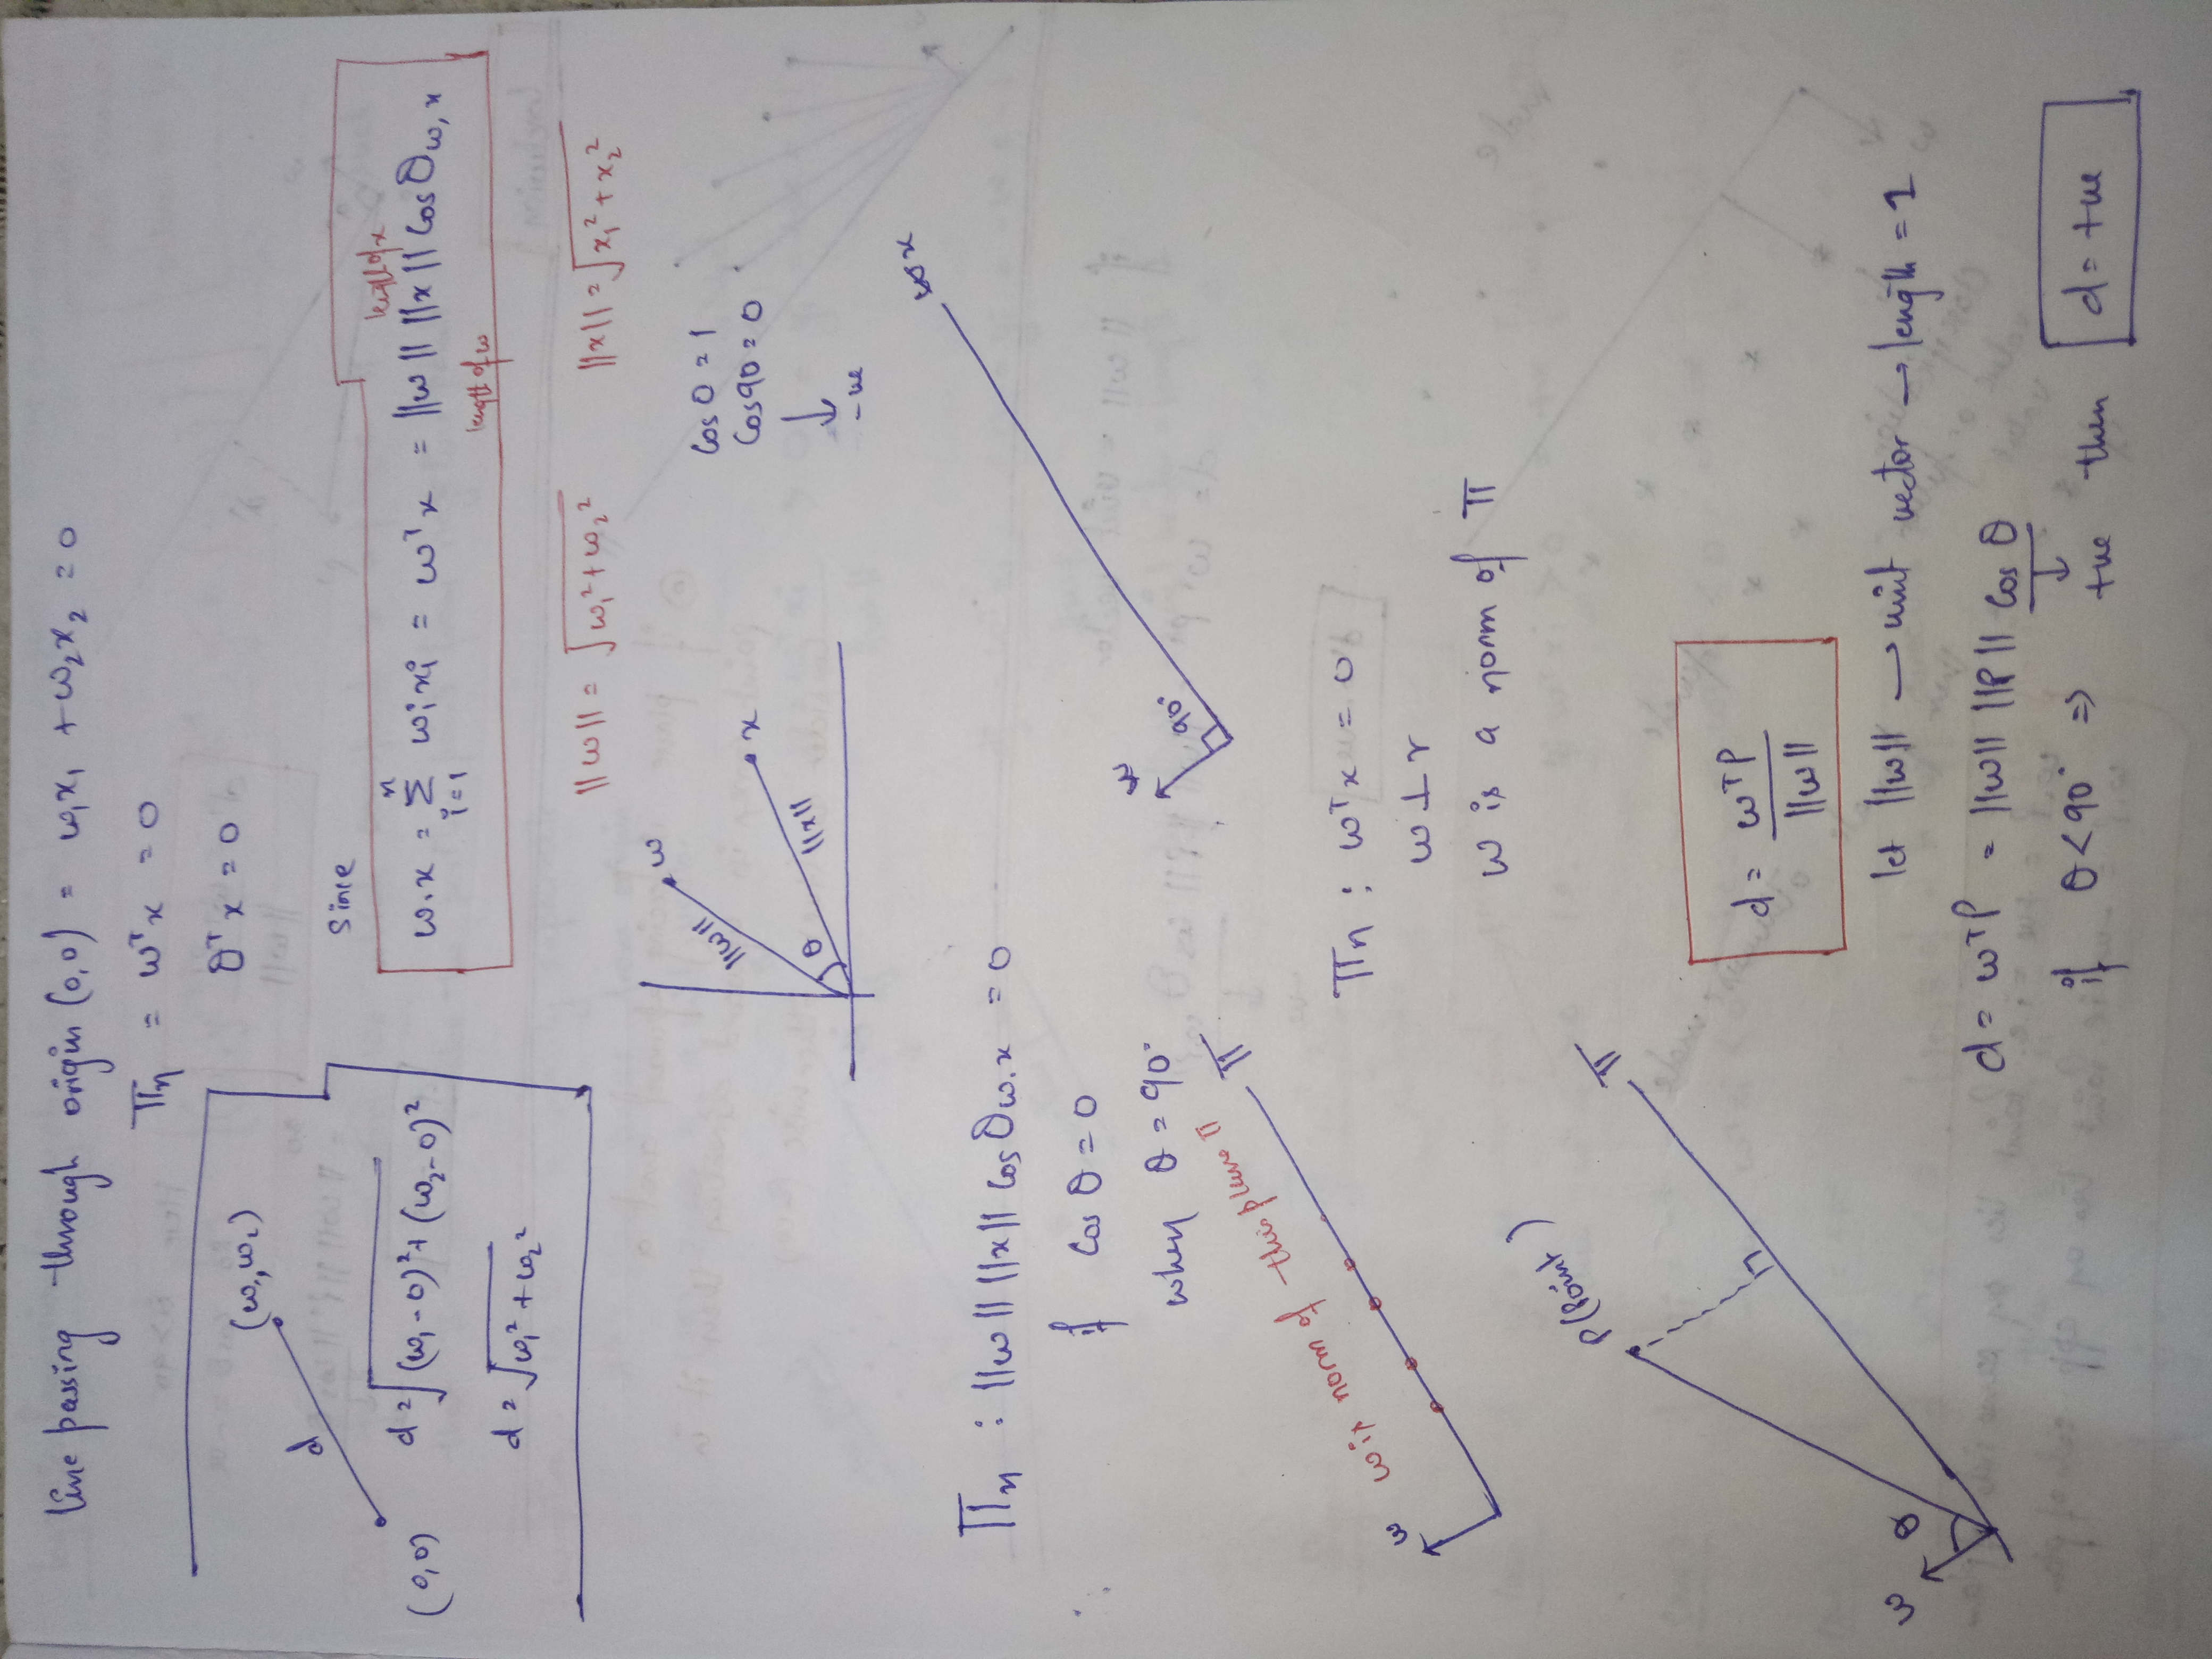 line passing through origin (0,0) = w₁x₁ + w₂x₂ = 0
πn = wᵀx = 0
θᵀx = 0
(w₁, w₂)
d
(0,0)
d = √(w₁-0)² + (w₂-0)²
d = √w₁² + w₂²
Since
length of x
w.x = Σ wixi = wᵀx = ||w|| ||x|| Cos θw,x
n
i=1
length of w
||w|| = √w₁² + w₂²
||x|| = √x₁² + x₂²
w
||w||
x
θ
||x||
Cos 0 = 1
Cos 90 = 0
↓
-ve
πn : ||w|| ||x|| Cos θw.x = 0
if Cos θ = 0
when θ = 90°
x
w
90°
w is norm of this plane π
π
w
πn : wᵀx = 0
w ⊥ r
w is a norm of π
P(Point)
π
w
θ
d = wᵀP / ||w||
let ||w|| → unit vector → length = 1
d = wᵀP = ||w|| ||P|| Cos θ
↓
if θ < 90° ⇒ +ve then d = +ve